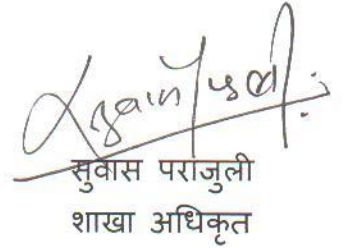 सुवास पराजुली
शाखा अधिकृत